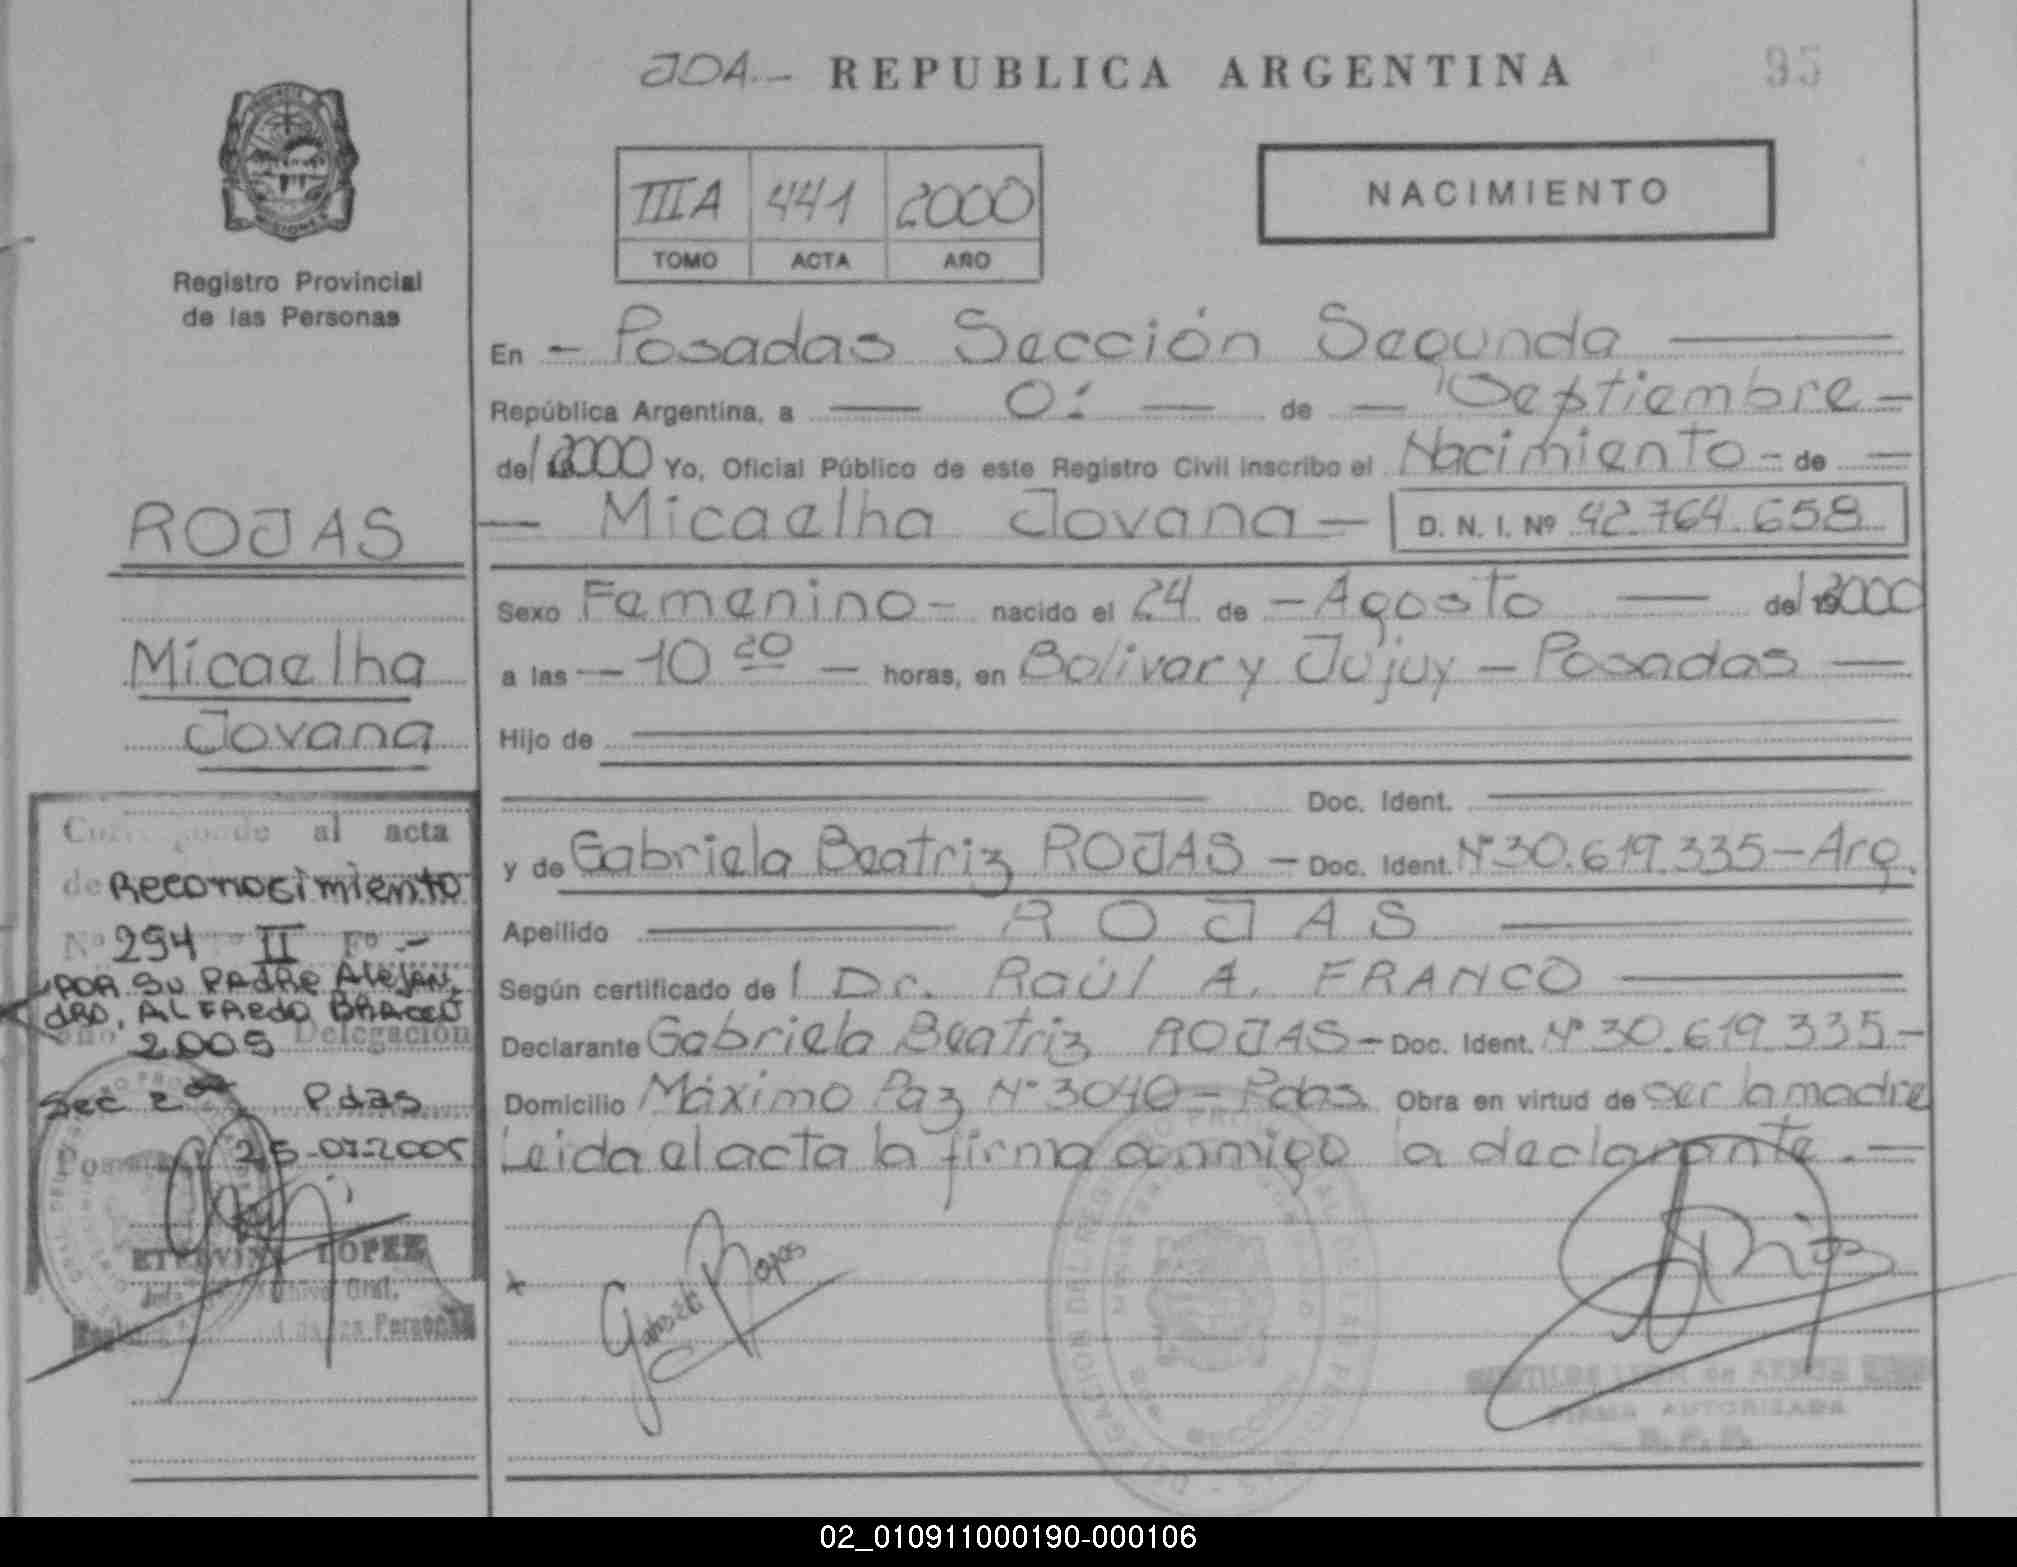 JDA.- REPUBLICA ARGENTINA 95
Registro Provincial
de las Personas
IIIA 441 2000
TOMO ACTA AÑO
NACIMIENTO
En - Posadas Sección Segunda
República Argentina, a — 01 — de — Septiembre -
del 2000 Yo, Oficial Público de este Registro Civil inscribo el Nacimiento - de —
— Micaelha Jovana — D. N. I. Nº 42.764.658
ROJAS
Micaelha
Jovana
Sexo Femenino - nacido el 24 de - Agosto — del 2000
a las — 10 20 — horas, en Bolivar y Jujuy - Posadas —
Hijo de
Doc. Ident.
y de Gabriela Beatriz ROJAS - Doc. Ident. Nº 30.619.335 - Arg.
Apellido ROJAS
Según certificado de l Dr. Raúl A. FRANCO
Declarante Gabriela Beatriz ROJAS - Doc. Ident. Nº 30.619.335 -
Domicilio Máximo Paz Nº 3040 - Pdas. Obra en virtud de ser la madre
Leida el acta la firma conmigo la declarante. —
Corresponde al acta
de Reconocimiento
Nº 294 Tº II Fº -
POR SU PADRE ALEJAN
DRO, ALFREDO
año 2005 Delegación
Sec 2da Pdas
Posadas 25-07-2005
ETELVINA LOPEZ
Archivo Gral.
Personas
Gabriela Rojas
FIRMA AUTORIZADA
R. P. P.
02_010911000190-000106